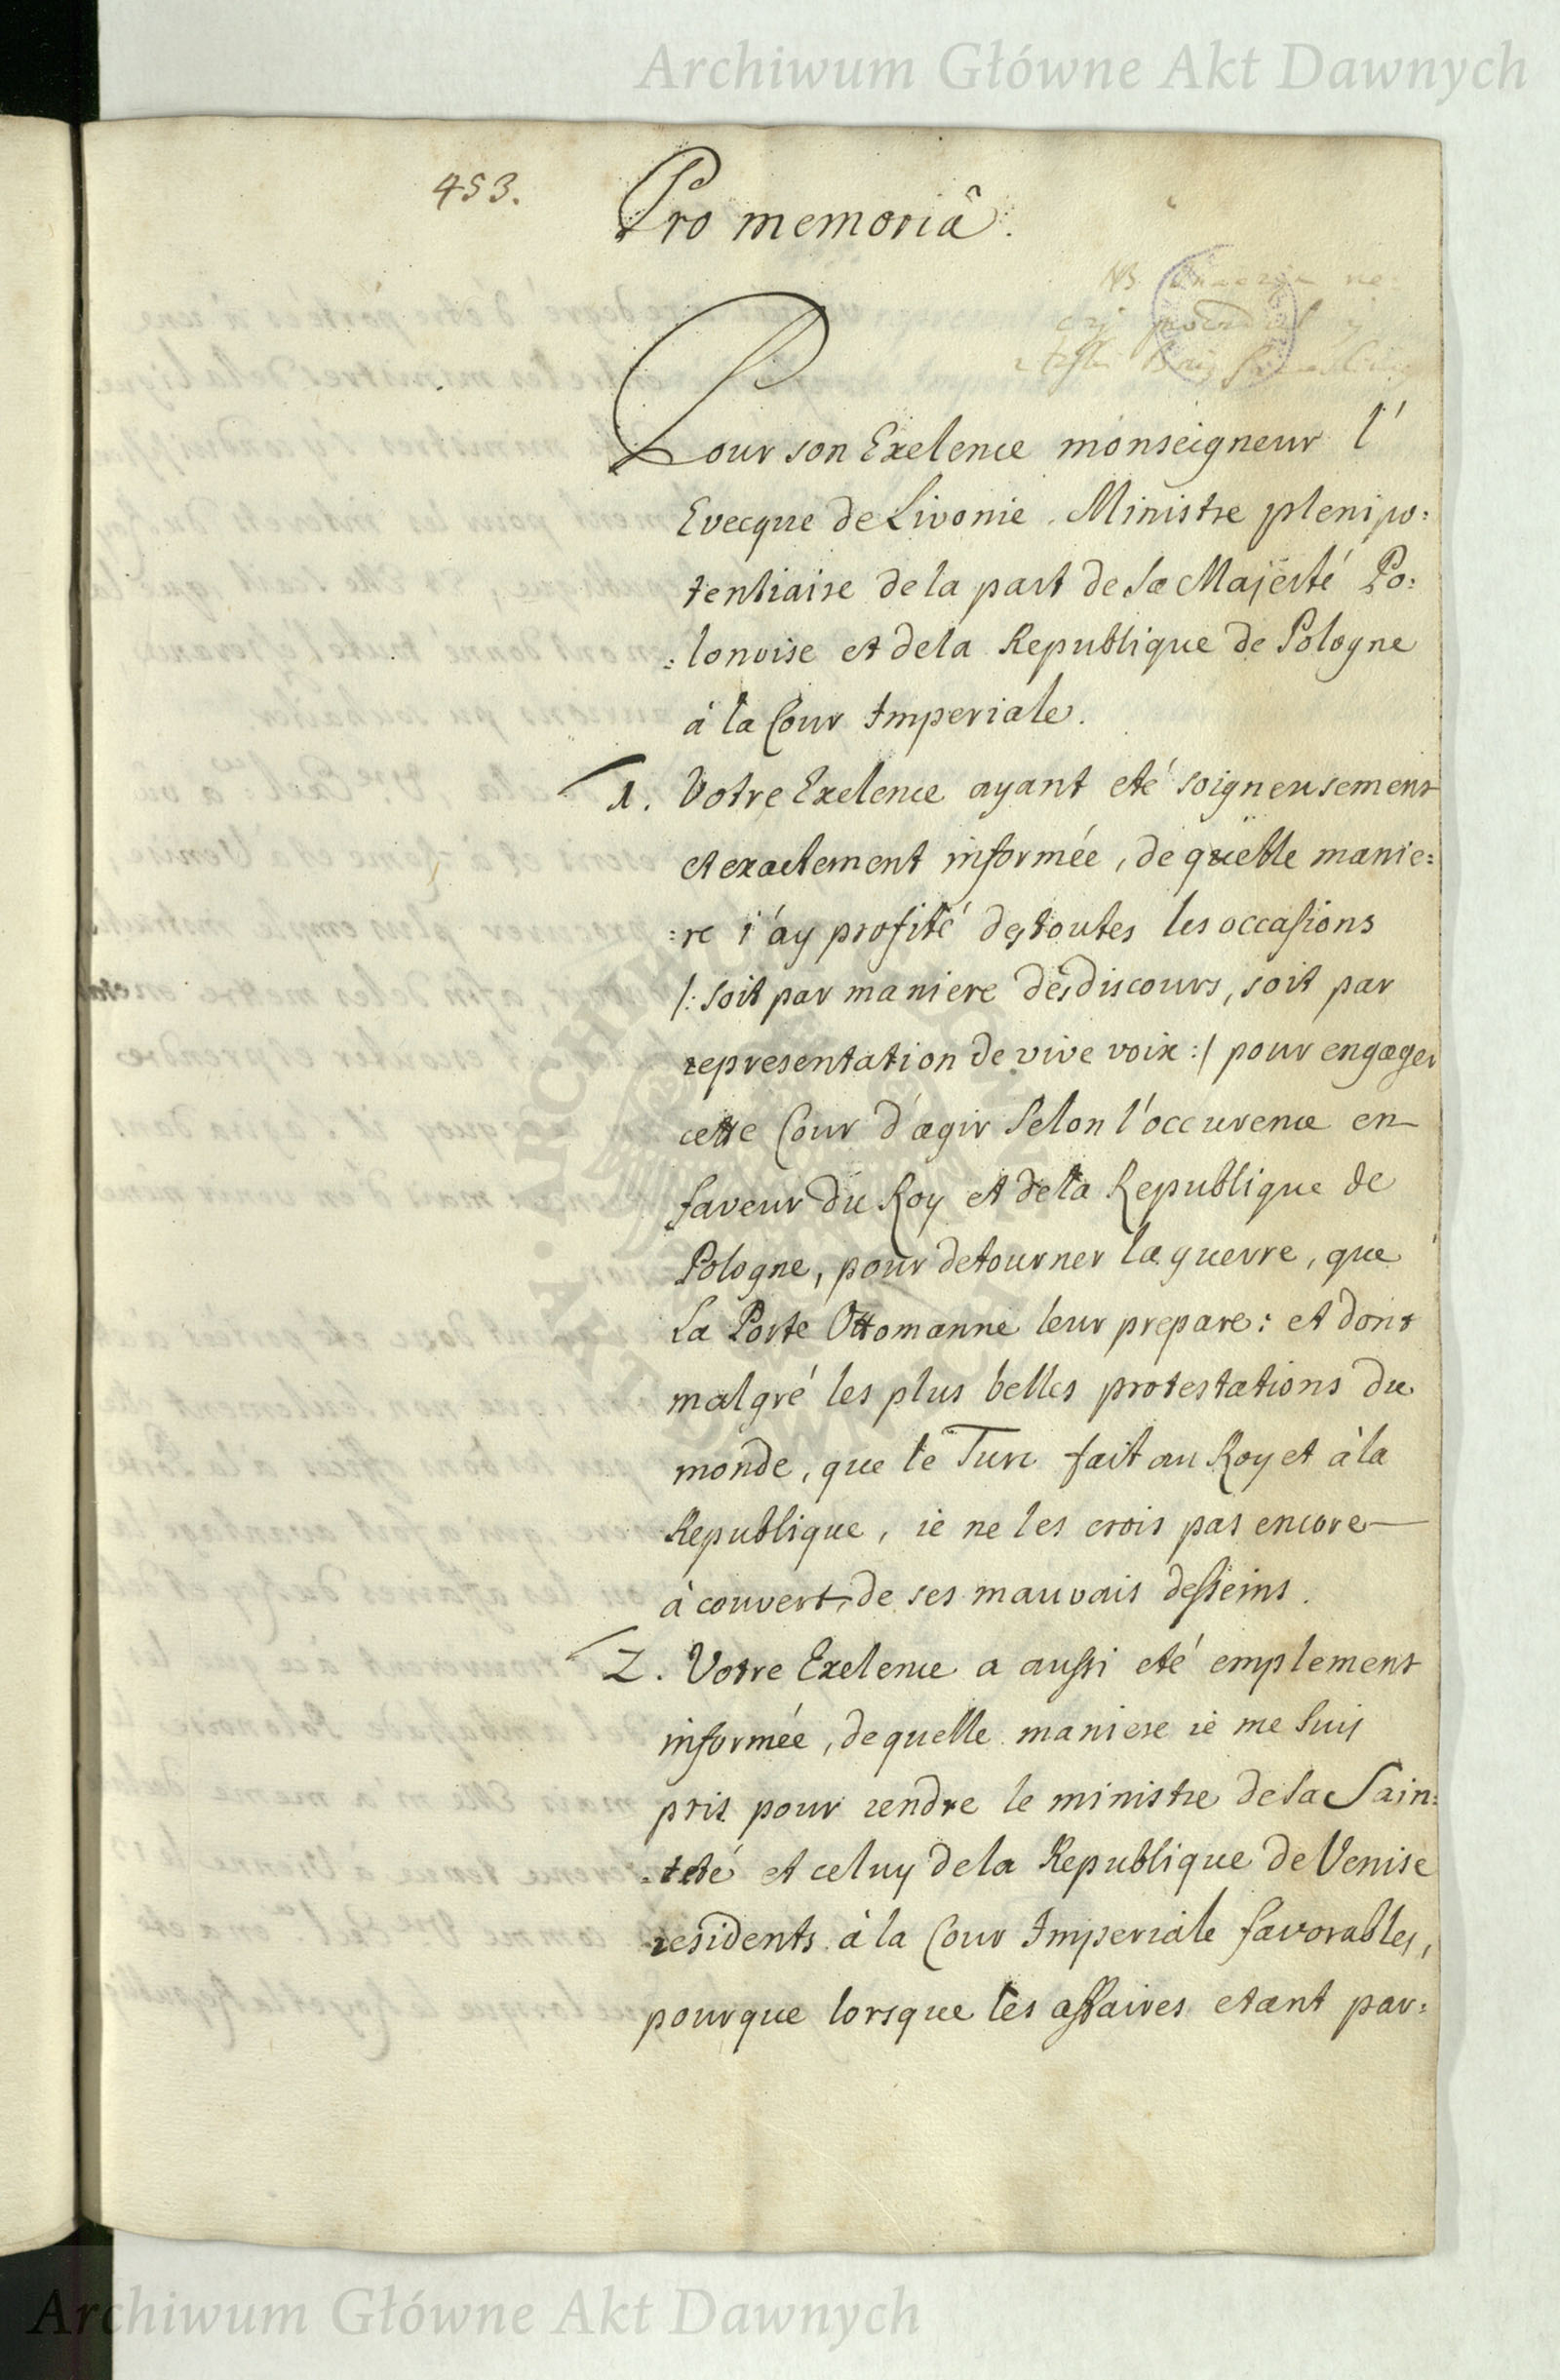 Archiwum Główne Akt Dawnych
453.
Pro memoriâ.
Pour son Exelence monseigneur l'
Evecque de Livonie. Ministre plenipo:
tentiaire de la part de Sa Majesté Po:
:lonoise et de la Republique de Pologne
à la Cour Imperiale.
1. Votre Exelence ayant eté soigneusement
et exactement informée, de quelle manie:
:re i'ay profité de toutes les occasions
/: soit par maniere des discours, soit par
representation de vive voix :/ pour engager
cette Cour d'agir selon l'occurence en
faveur du Roy et de la Republique de
Pologne, pour detourner la guerre, que
La Porte Ottomanne leur prepare: et dont
malgré les plus belles protestations du
monde, que le Turc fait au Roy et à la
Republique, ie ne les crois pas encore
à couvert de ses mauvais desseins.
2. Votre Exelence a aussi eté emplement
informée, de quelle maniere ie me suis
pris pour rendre le ministre de sa Sain:
:teté et celuy de la Republique de Venise
residents à la Cour Imperiale favorables,
pourque lorsque les affaires etant par:
Archiwum Główne Akt Dawnych